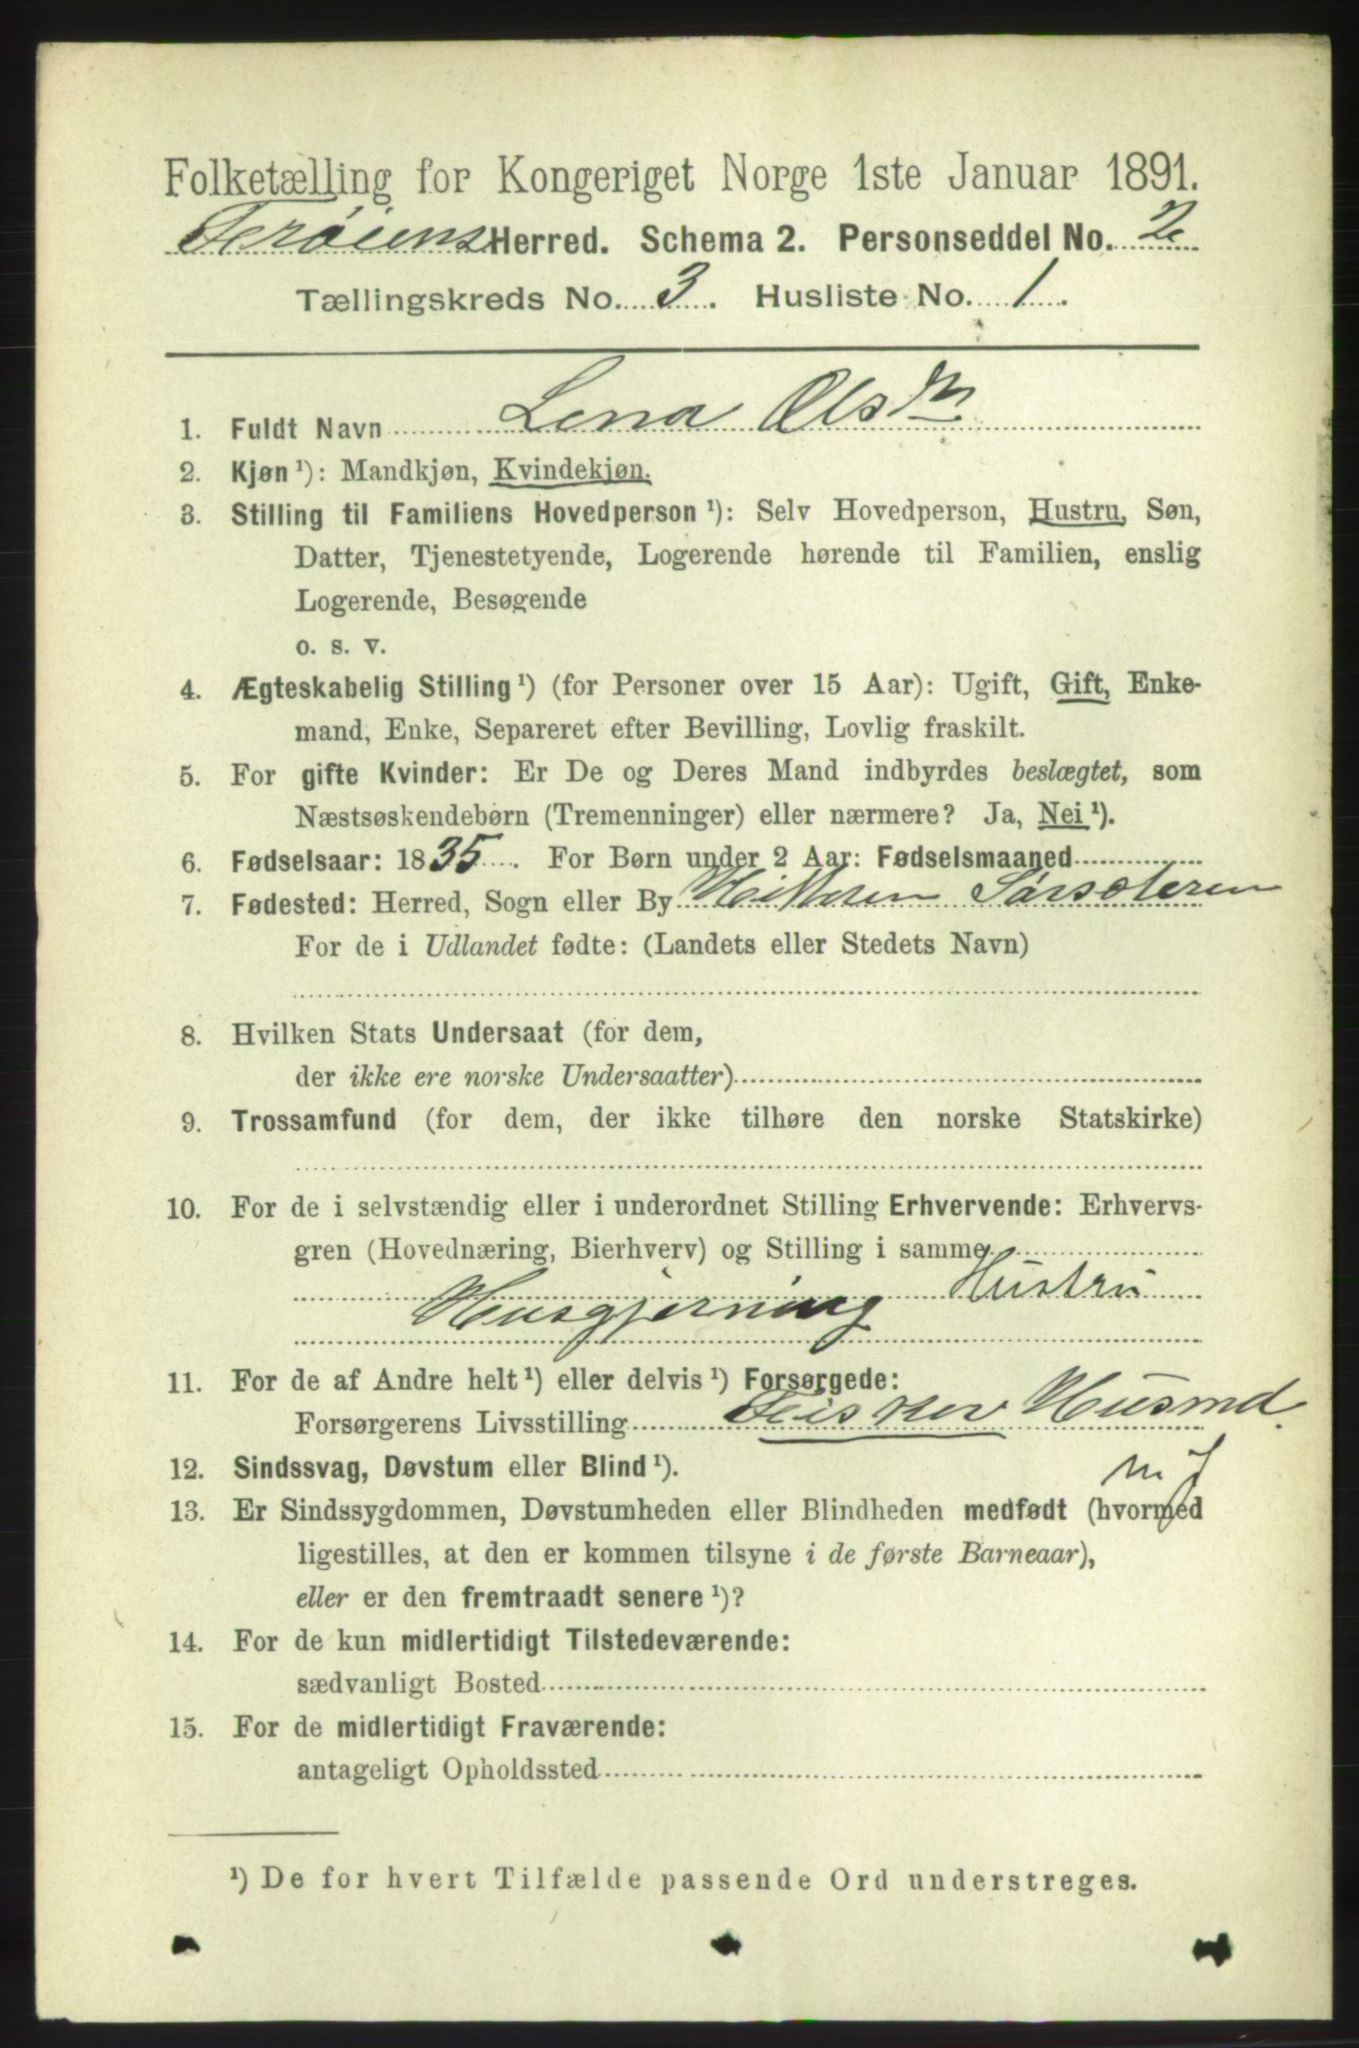 Folketælling for Kongeriget Norge 1ste Januar 1891.
Frøiens Herred. Schema 2. Personseddel No. 2
Tællingskreds No. 3. Husliste No. 1.
1. Fuldt Navn Lena Olsdn
2. Kjøn ¹): Mandkjøn, Kvindekjøn.
3. Stilling til Familiens Hovedperson ¹): Selv Hovedperson, Hustru, Søn,
Datter, Tjenestetyende, Logerende hørende til Familien, enslig
Logerende, Besøgende
o. s. v.
4. Ægteskabelig Stilling ¹) (for Personer over 15 Aar): Ugift, Gift, Enke-
mand, Enke, Separeret efter Bevilling, Lovlig fraskilt.
5. For gifte Kvinder: Er De og Deres Mand indbyrdes beslægtet, som
Næstsøskendebørn (Tremenninger) eller nærmere? Ja, Nei ¹).
6. Fødselsaar: 1835. For Børn under 2 Aar: Fødselsmaaned
7. Fødested: Herred, Sogn eller By Hitteren
For de i Udlandet fødte: (Landets eller Stedets Navn)
8. Hvilken Stats Undersaat (for dem,
der ikke ere norske Undersaatter)
9. Trossamfund (for dem, der ikke tilhøre den norske Statskirke)
10. For de i selvstændig eller i underordnet Stilling Erhvervende: Erhvervs-
gren (Hovednæring, Bierhverv) og Stilling i samme
Husgjerning Hustru
11. For de af Andre helt ¹) eller delvis ¹) Forsørgede:
Forsørgerens Livsstilling Fisker Husmd.
12. Sindssvag, Døvstum eller Blind ¹).
13. Er Sindssygdommen, Døvstumheden eller Blindheden medfødt (hvormed
ligestilles, at den er kommen tilsyne i de første Barneaar),
eller er den fremtraadt senere ¹)?
14. For de kun midlertidigt Tilstedeværende:
sædvanligt Bosted
15. For de midlertidigt Fraværende:
antageligt Opholdssted
¹) De for hvert Tilfælde passende Ord understreges.